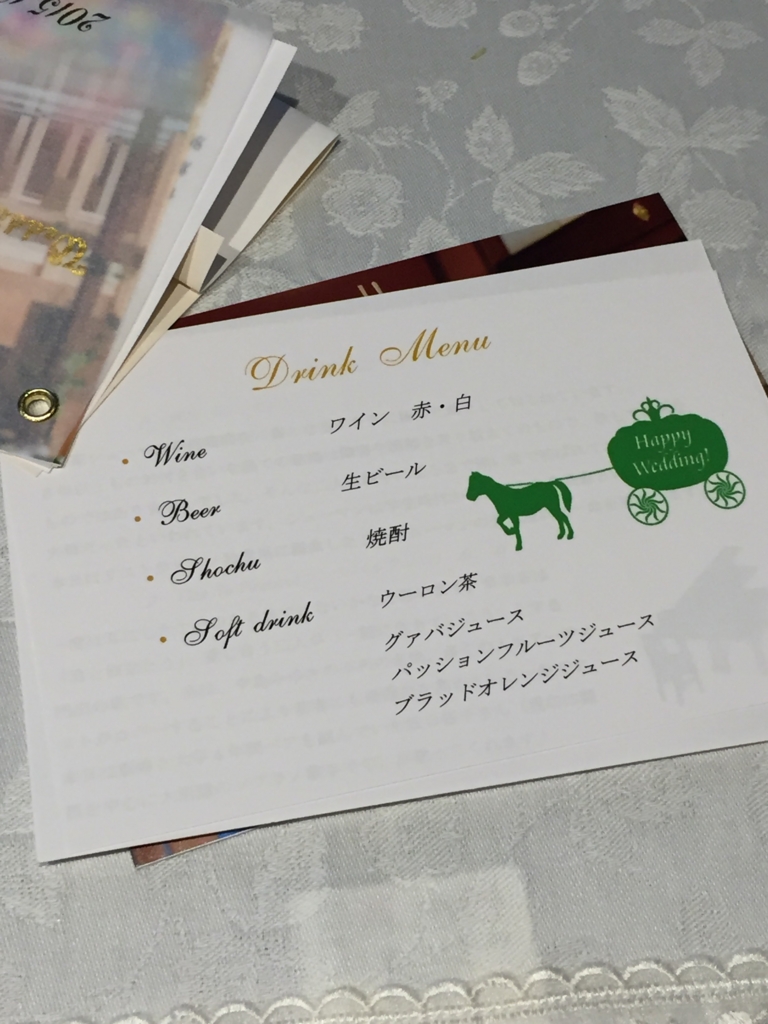 2015
Drink Menu
• Wine ワイン 赤・白
• Beer 生ビール
• Shochu 焼酎
• Soft drink ウーロン茶
グァバジュース
パッションフルーツジュース
ブラッドオレンジジュース
Happy
Wedding!